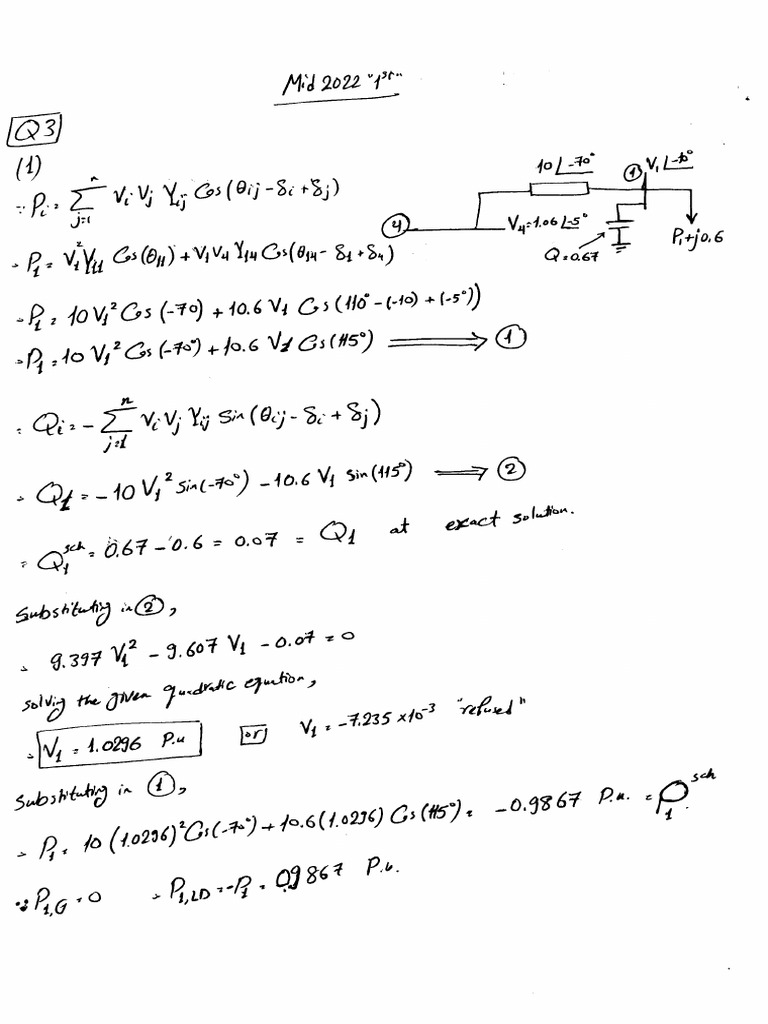 Mid 2022 "1st"
Q3
(1)
∵ Pi = Σ_{j=1}^{n} Vi Vj Yij Cos(θij - δi + δj)
∴ P1 = V1² Y11 Cos(θ11) + V1 V4 Y14 Cos(θ14 - δ1 + δ4)
∴ P1 = 10 V1² Cos(-70) + 10.6 V1 Cos(110° - (-10) + (-5°))
∴ P1 = 10 V1² Cos(-70°) + 10.6 V1 Cos(115°) ⟹ ①
10∠-70°
① V1∠-10°
④
V4=1.06∠-5°
Q=0.67
P1+j0.6
∴ Qi = - Σ_{j=1}^{n} Vi Vj Yij Sin(θij - δi + δj)
∴ Q1 = -10 V1² Sin(-70°) - 10.6 V1 Sin(115°) ⟹ ②
∴ Q1^sch = 0.67 - 0.6 = 0.07 = Q1 at exact solution.
Substituting in ②,
∴ 9.397 V1² - 9.607 V1 - 0.07 = 0
solving the given quadratic equation,
∴ V1 = 1.0296 P.u or V1 = -7.235 ×10⁻³ "refused"
Substituting in ①,
∴ P1 = 10 (1.0296)² Cos(-70°) + 10.6 (1.0296) Cos(115°) = -0.9867 P.u. = P1^sch
∵ P1,G = 0 ∴ P1,LD = -P1 = 0.9867 P.u.